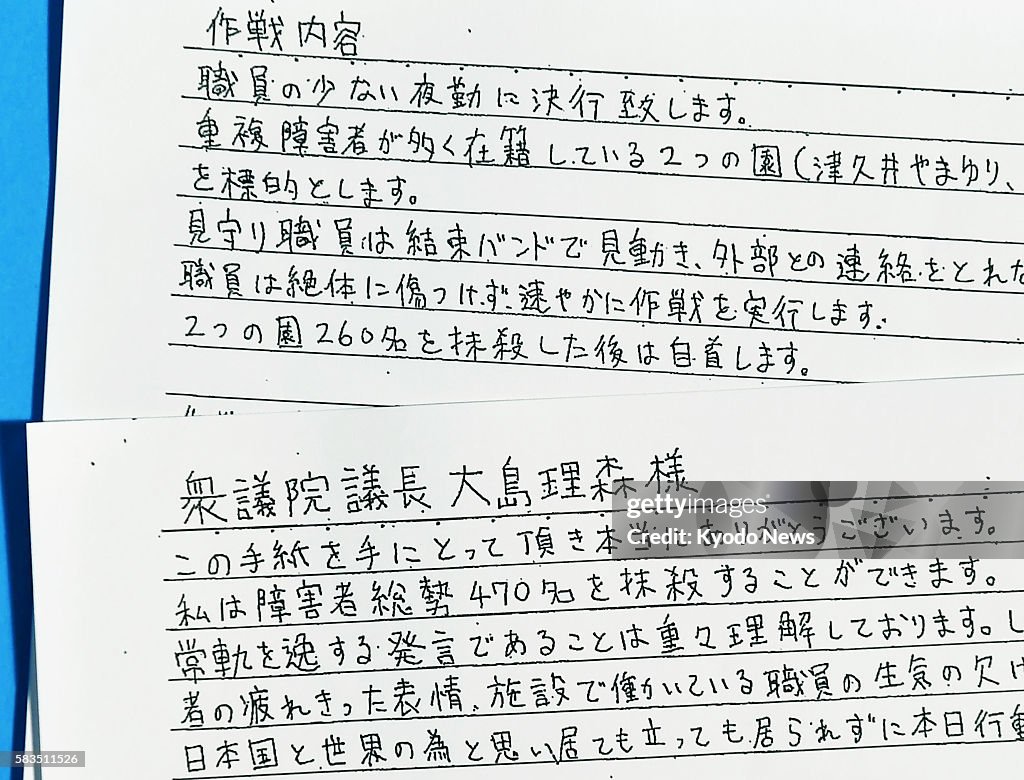 作戦内容
職員の少ない夜勤に決行致します。
重複障害者が多く在籍している2つの園(津久井やまゆり、
を標的とします。
見守り職員は結束バンドで見動き、外部との連絡をとれな
職員は絶体に傷つけず、速やかに作戦を実行します。
2つの園260名を抹殺した後は自首します。
衆議院議長大島理森様
この手紙を手にとって頂き本当にありがとうございます。
私は障害者総勢470名を抹殺することができます。
常軌を逸する発言であることは重々理解しております。し
者の疲れきった表情、施設で働かいている職員の生気の欠け
日本国と世界の為と思い居ても立っても居られずに本日行動
gettyimages
Kyodo News
583511526